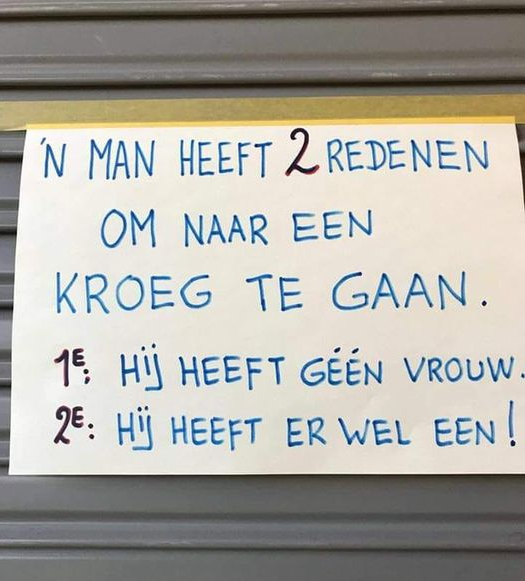 'N MAN HEEFT 2 REDENEN
OM NAAR EEN
KROEG TE GAAN.
1E: HIJ HEEFT GÉÉN VROUW.
2E: HIJ HEEFT ER WEL EEN!